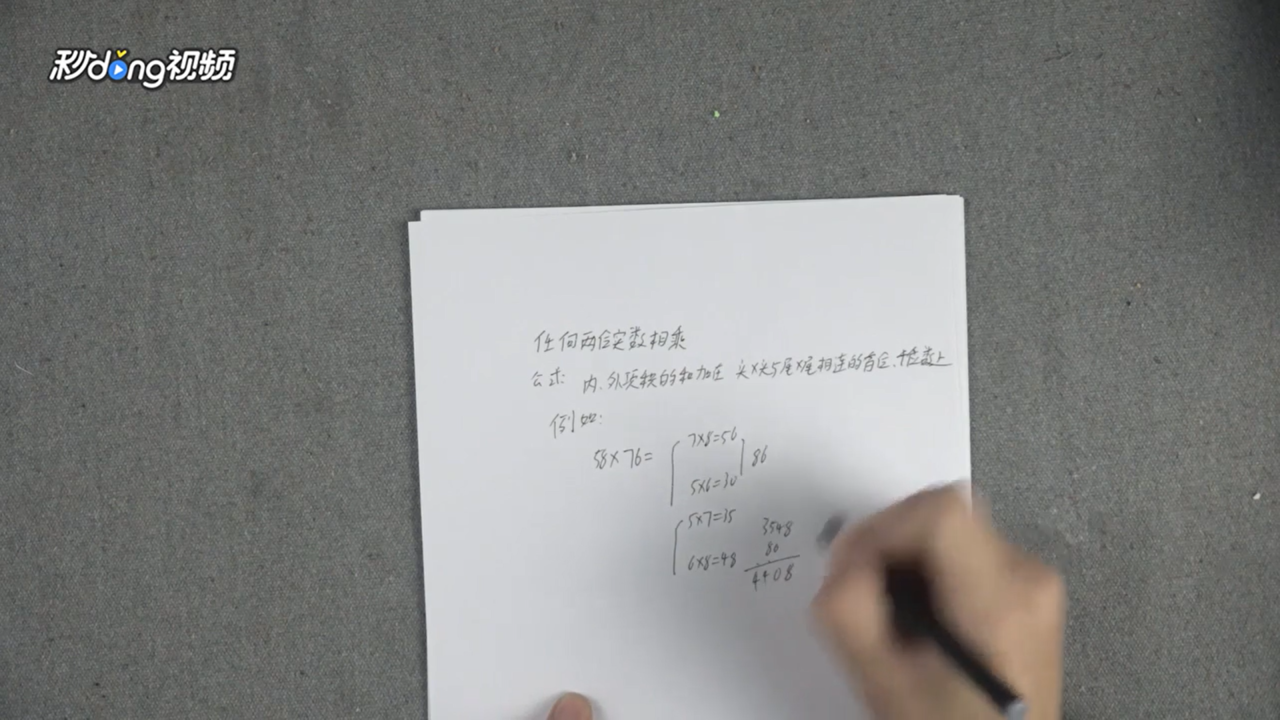 秒dong视频
任何两位实数相乘
公式: 内、外项积的和加在 头×头与尾×尾相连的首位、十位数上
例如:
58×76=
7×8=56
5×6=30
86
5×7=35
6×8=48
3548
86
4408